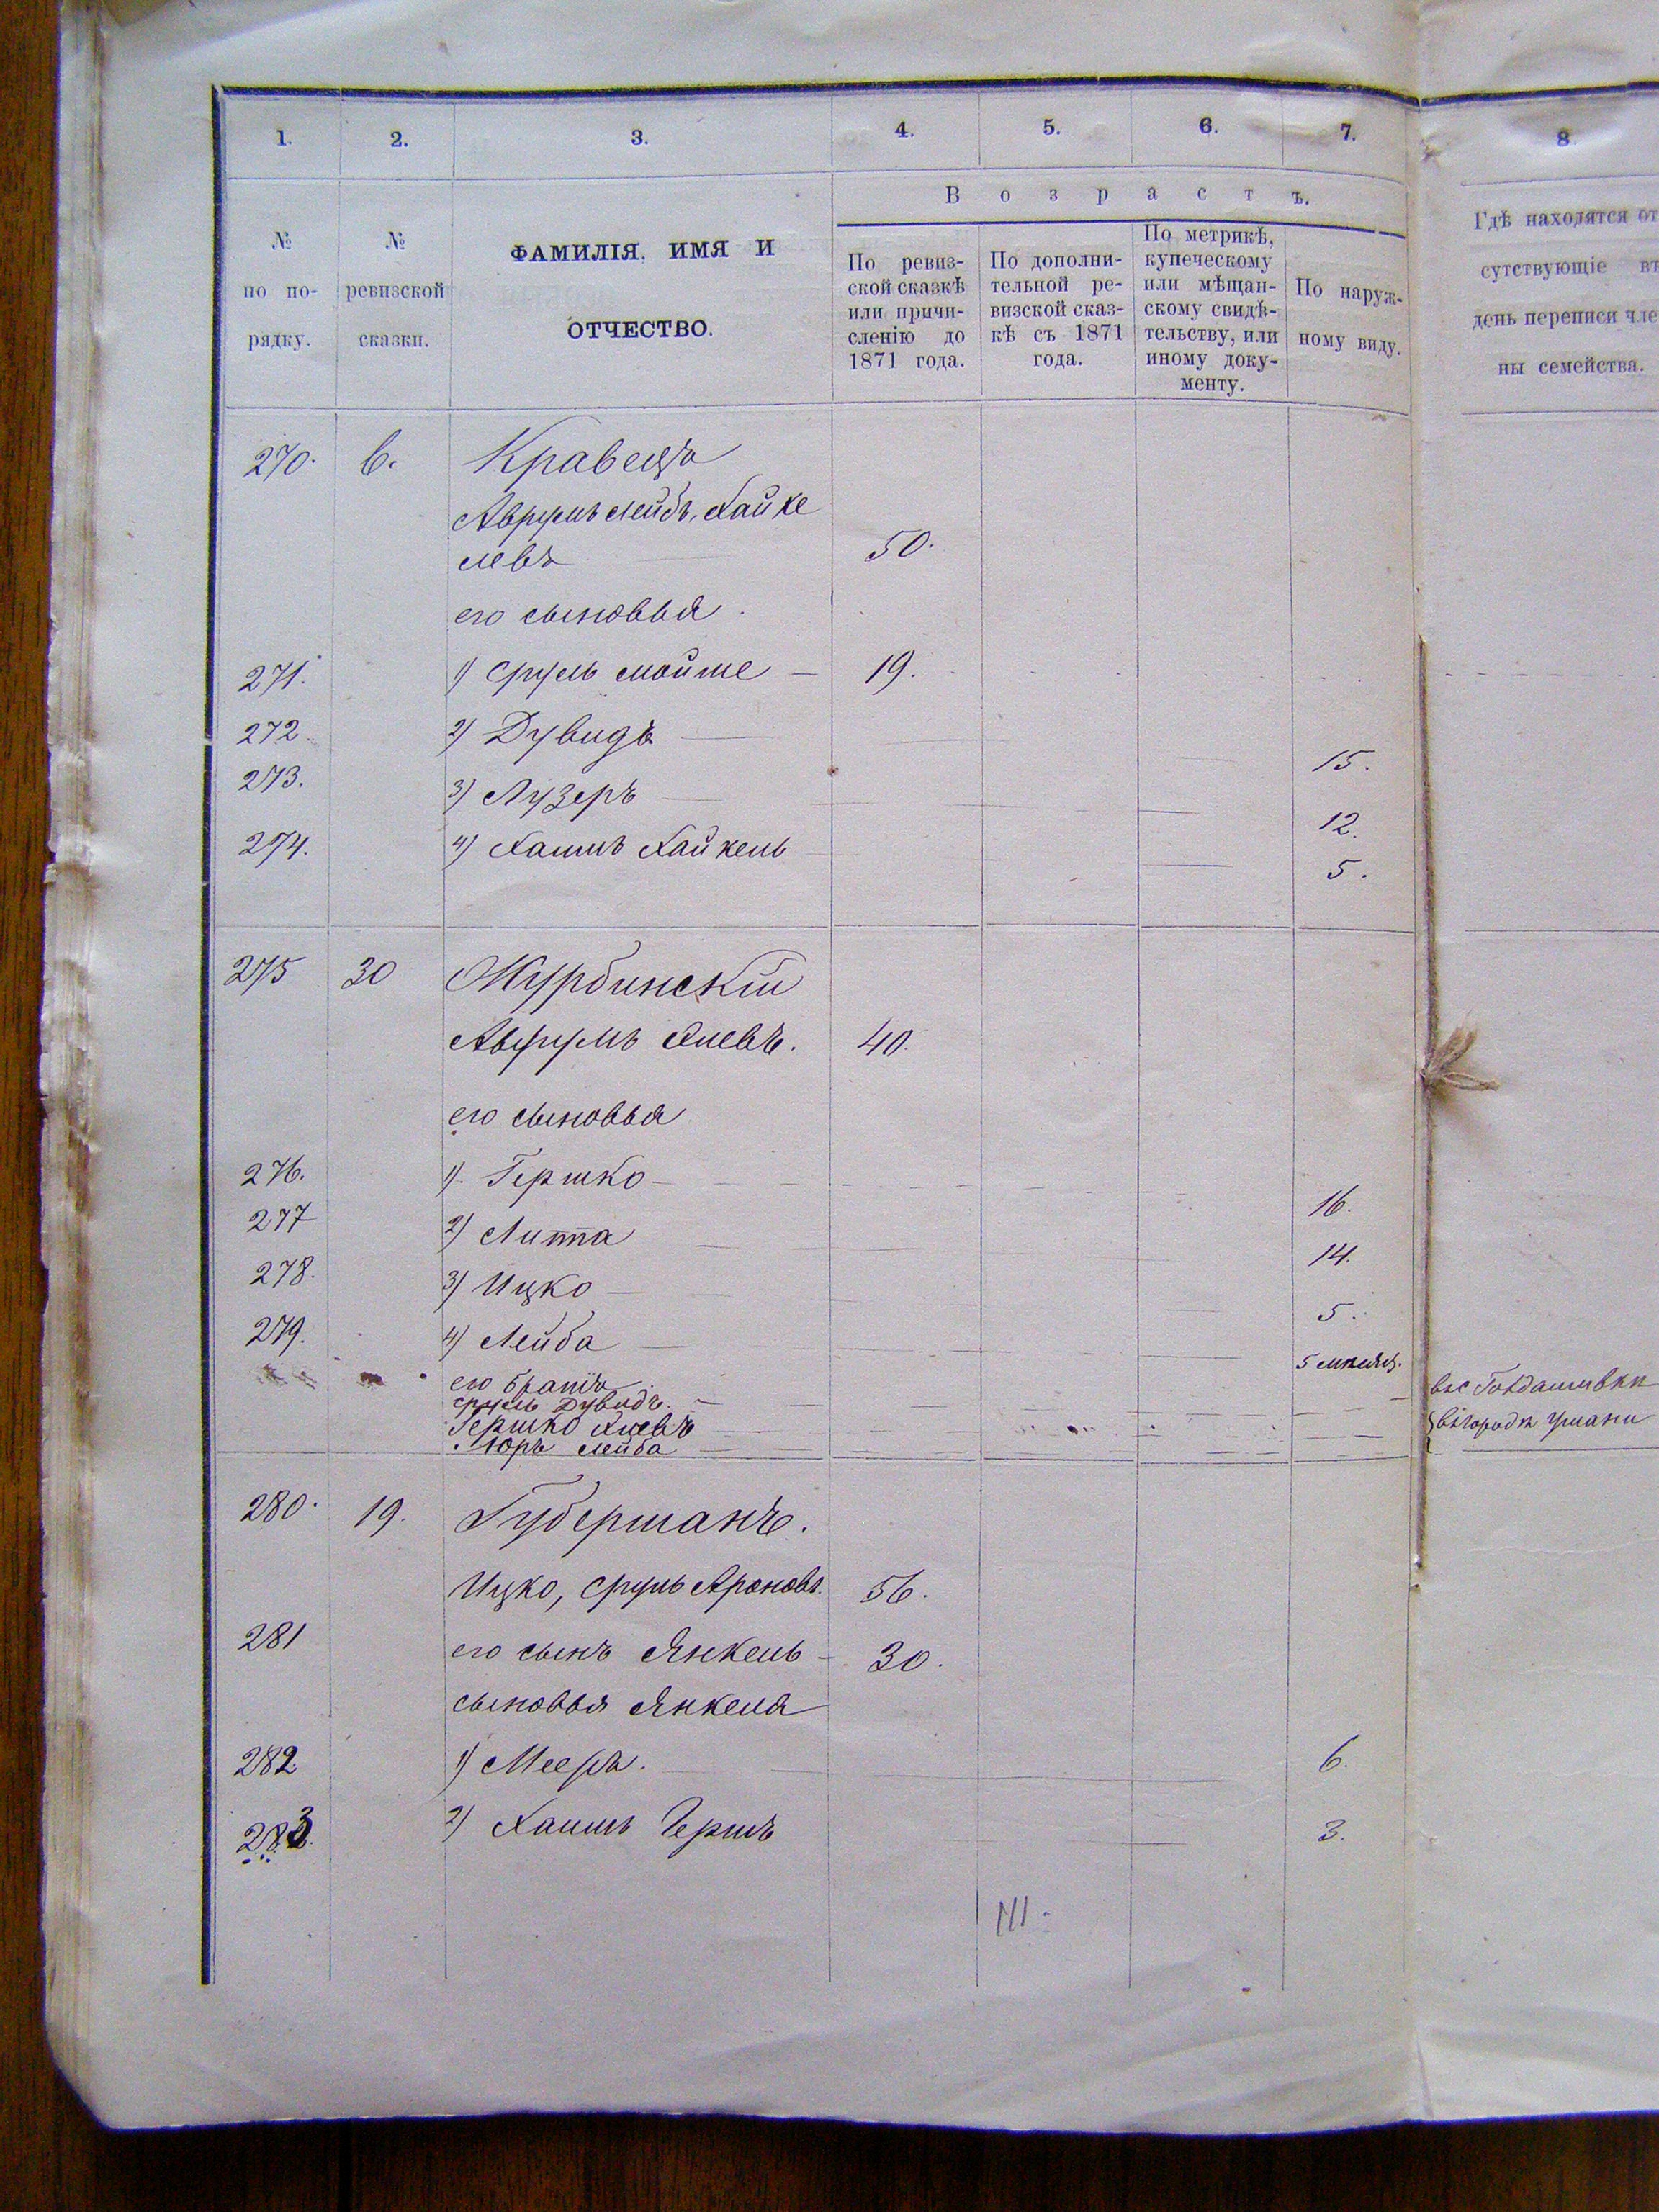 1. 2. 3. 4. 5. 6. 7. 8
Возрастъ.
№ по по- рядку.
№ ревизской сказки.
ФАМИЛІЯ, ИМЯ И
ОТЧЕСТВО.
По ревиз-
ской сказкѣ
или причи-
сленію до
1871 года.
По дополни-
тельной ре-
визской сказ-
кѣ съ 1871
года.
По метрикѣ,
купеческому
или мѣщан-
скому свидѣ-
тельству, или
иному доку-
менту.
По наруж-
ному виду.
Гдѣ находятся от
сутствующіе въ
день переписи чле
ны семейства.
270. 6. Кравецъ
Аврумъ Лейбъ, Хайке
левъ 50.
его сыновья
271. 1) Сруль Мойше 19.
272 2) Дувидъ 15.
273. 3) Лузеръ 12.
274. 4) Хаимъ Хайкель 5.
275 30 Журбинскій
Аврумъ 40.
его сыновья
276. 1). Гершко 16.
277 2) Литта 14.
278. 3) Ицко 5.
279. 4) Лейба 5 мѣсяц.
его братія
Сруль Дувидъ.
Гершко
Лейба
въ городѣ Умани
280. 19. Губерманъ.
Ицко, Сруль Ароновъ. 56.
281 его сынъ Янкель 30.
сыновья Янкеля
282 1) Мееръ. 6.
283. 2) Хаимъ Гершъ 3.